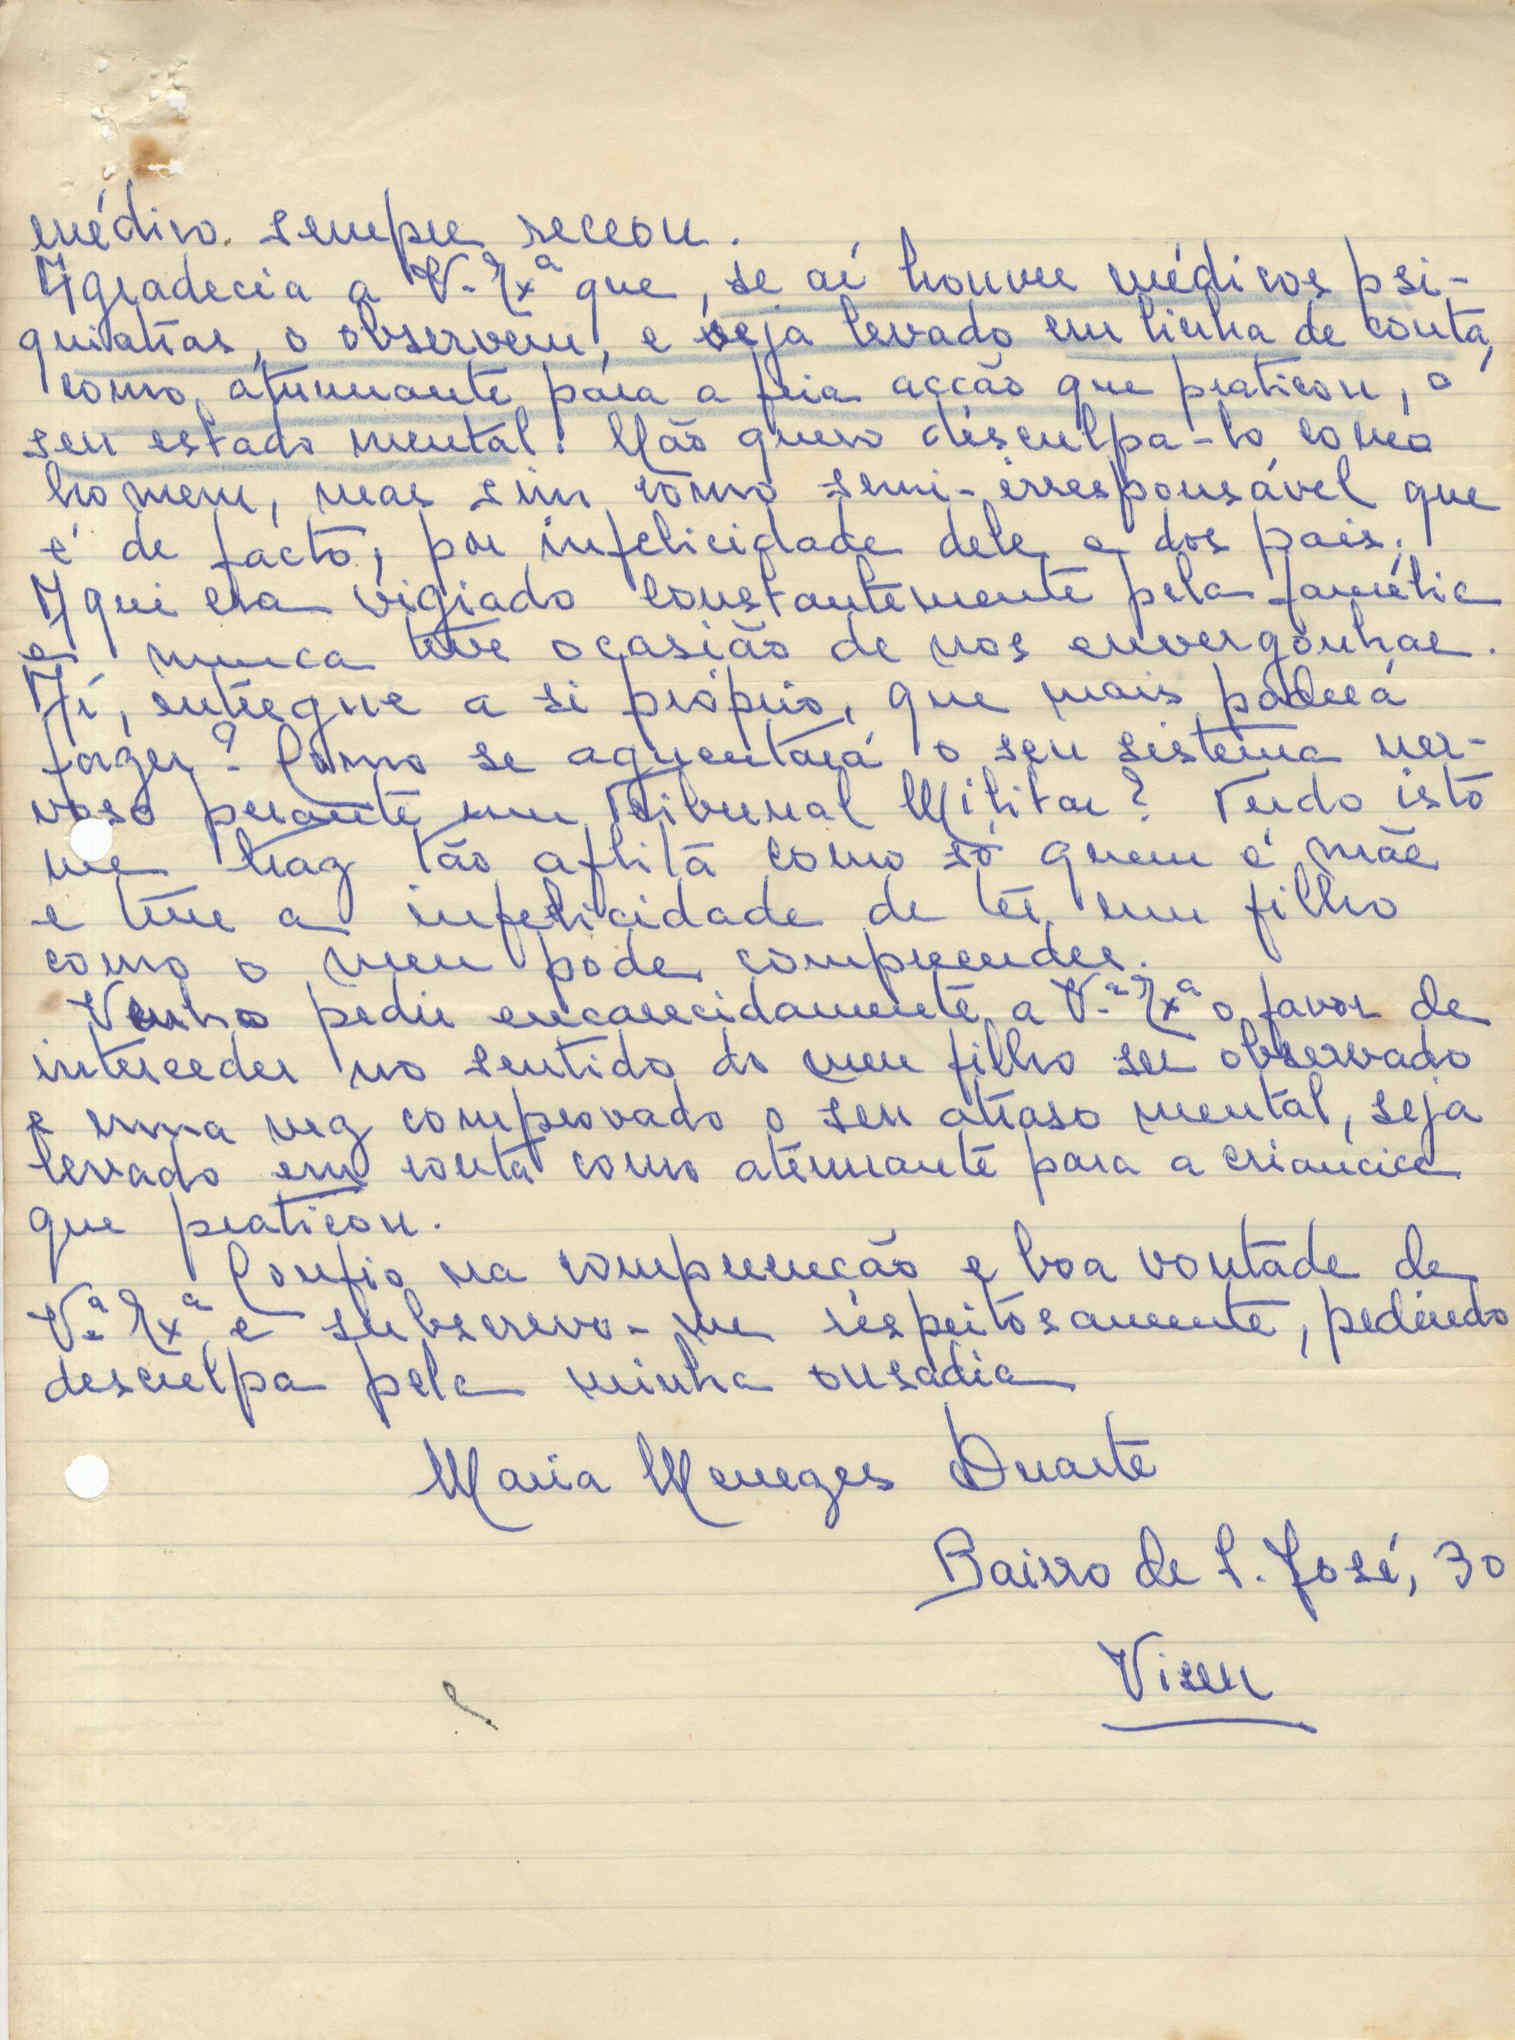 médico sempre receou.
Agradecia a V.ª Exª que, se aí houver médicos psi-
quiatras, o observem, e seja levado em linha de conta,
como atenuante para a feia acção que praticou, o
seu estado mental. Não quero desculpa-lo como
homem, mas sim como semi-irresponsável que
é de facto, por infelicidade dele e dos pais.
Aqui era vigiado constantemente pela família
e nunca teve ocasião de nos envergonhar.
Aí, entregue a si próprio, que mais poderá
fazer? Como se aguentará o seu sistema ner-
voso perante um Tribunal Militar? Tudo isto
me traz tão aflita como só quem é mãe
e tem a infelicidade de ter um filho
como o meu pode compreender.
Venho pedir encarecidamente a V.ª Exª o favor de
interceder no sentido do meu filho ser observado
e uma vez comprovado o seu atraso mental, seja
levado em conta como atenuante para a criancice
que praticou.
Confio na compreenção e boa vontade de
V.ª Exª e subscrevo-me respeitosamente, pedindo
desculpa pela minha ousadia
Maria Menezes Duarte
Bairro de S. José, 30
Viseu